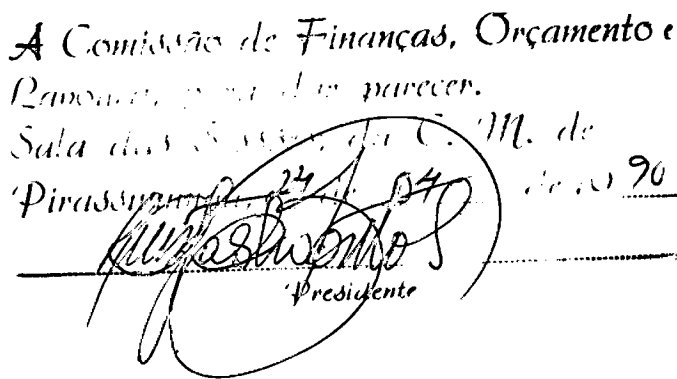 A Comissão de Finanças, Orçamento e
Lavoura, para dar parecer.
Sala das Sessões, da C. M. de
Pirassununga, 24 de 04 de 19 90
Presidente